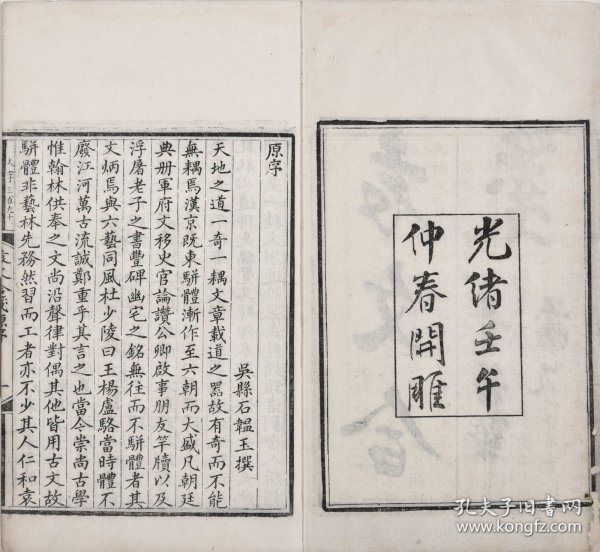 光緒壬午
仲春開雕
原序
吳縣石韞玉撰
天地之道一奇一耦文章載道之器故有奇而不能
無耦焉漢京既東駢體漸作至六朝而大盛凡朝廷
典册軍府文移史官論讚公卿啟事朋友牋牘以及
浮屠老子之書豐碑幽宅之銘無往而不駢體者其
文炳焉與六藝同風杜少陵曰王楊盧駱當時體不
廢江河萬古流誠鄭重乎其言之也當今崇尚古學
惟翰林供奉之文尚沿聲律對偶其他皆用古文故
駢體非藝林先務然習而工者亦不少其人仁和袁
孔夫子旧书网
www.kongfz.com